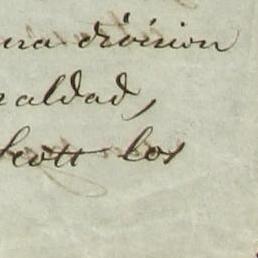 una división
raldad,
Scott los